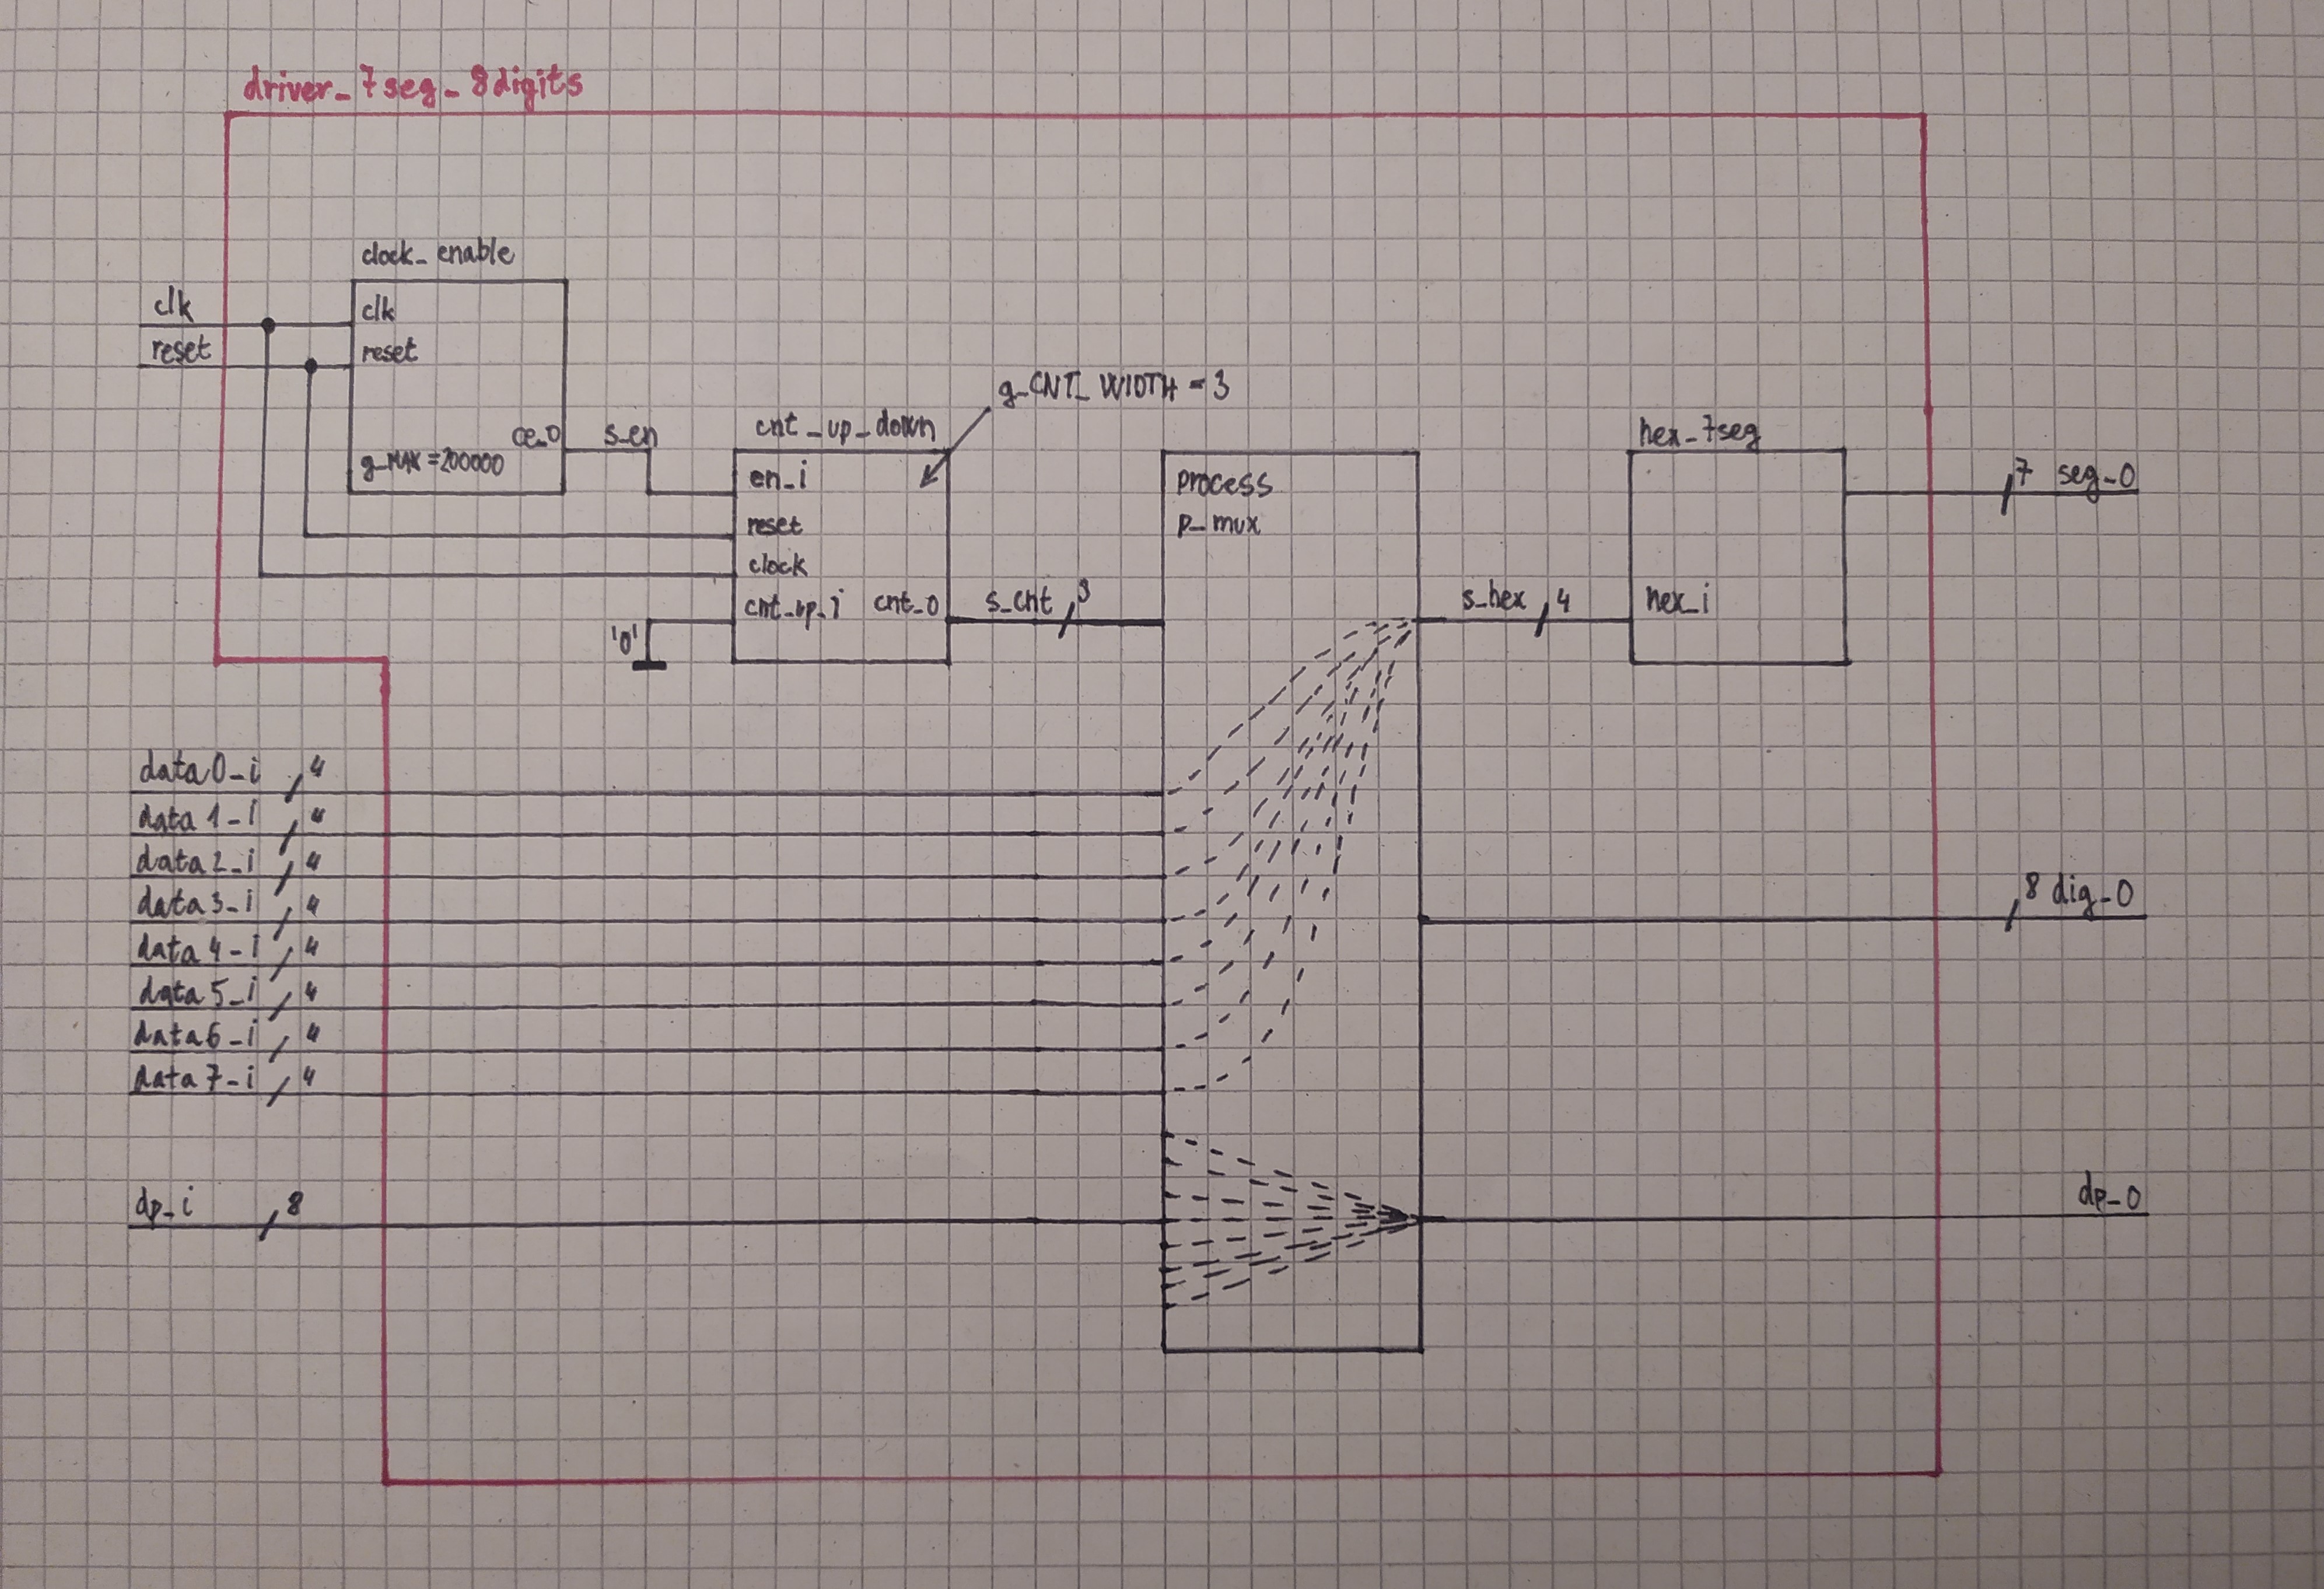 driver_7seg_8digits
clock_enable
clk
reset
clk
reset
ce_O
g_MAX = 200000
s_en
g_CNT_WIDTH = 3
cnt_up_down
en_i
reset
clock
cnt_up_i
cnt_O
'0'
s_cnt 3
process
p_mux
s_hex 4
hex_7seg
hex_i
7 seg_O
data0_i 4
data1_i 4
data2_i 4
data3_i 4
data4_i 4
data5_i 4
data6_i 4
data7_i 4
8 dig_O
dp_i 8
dp_O